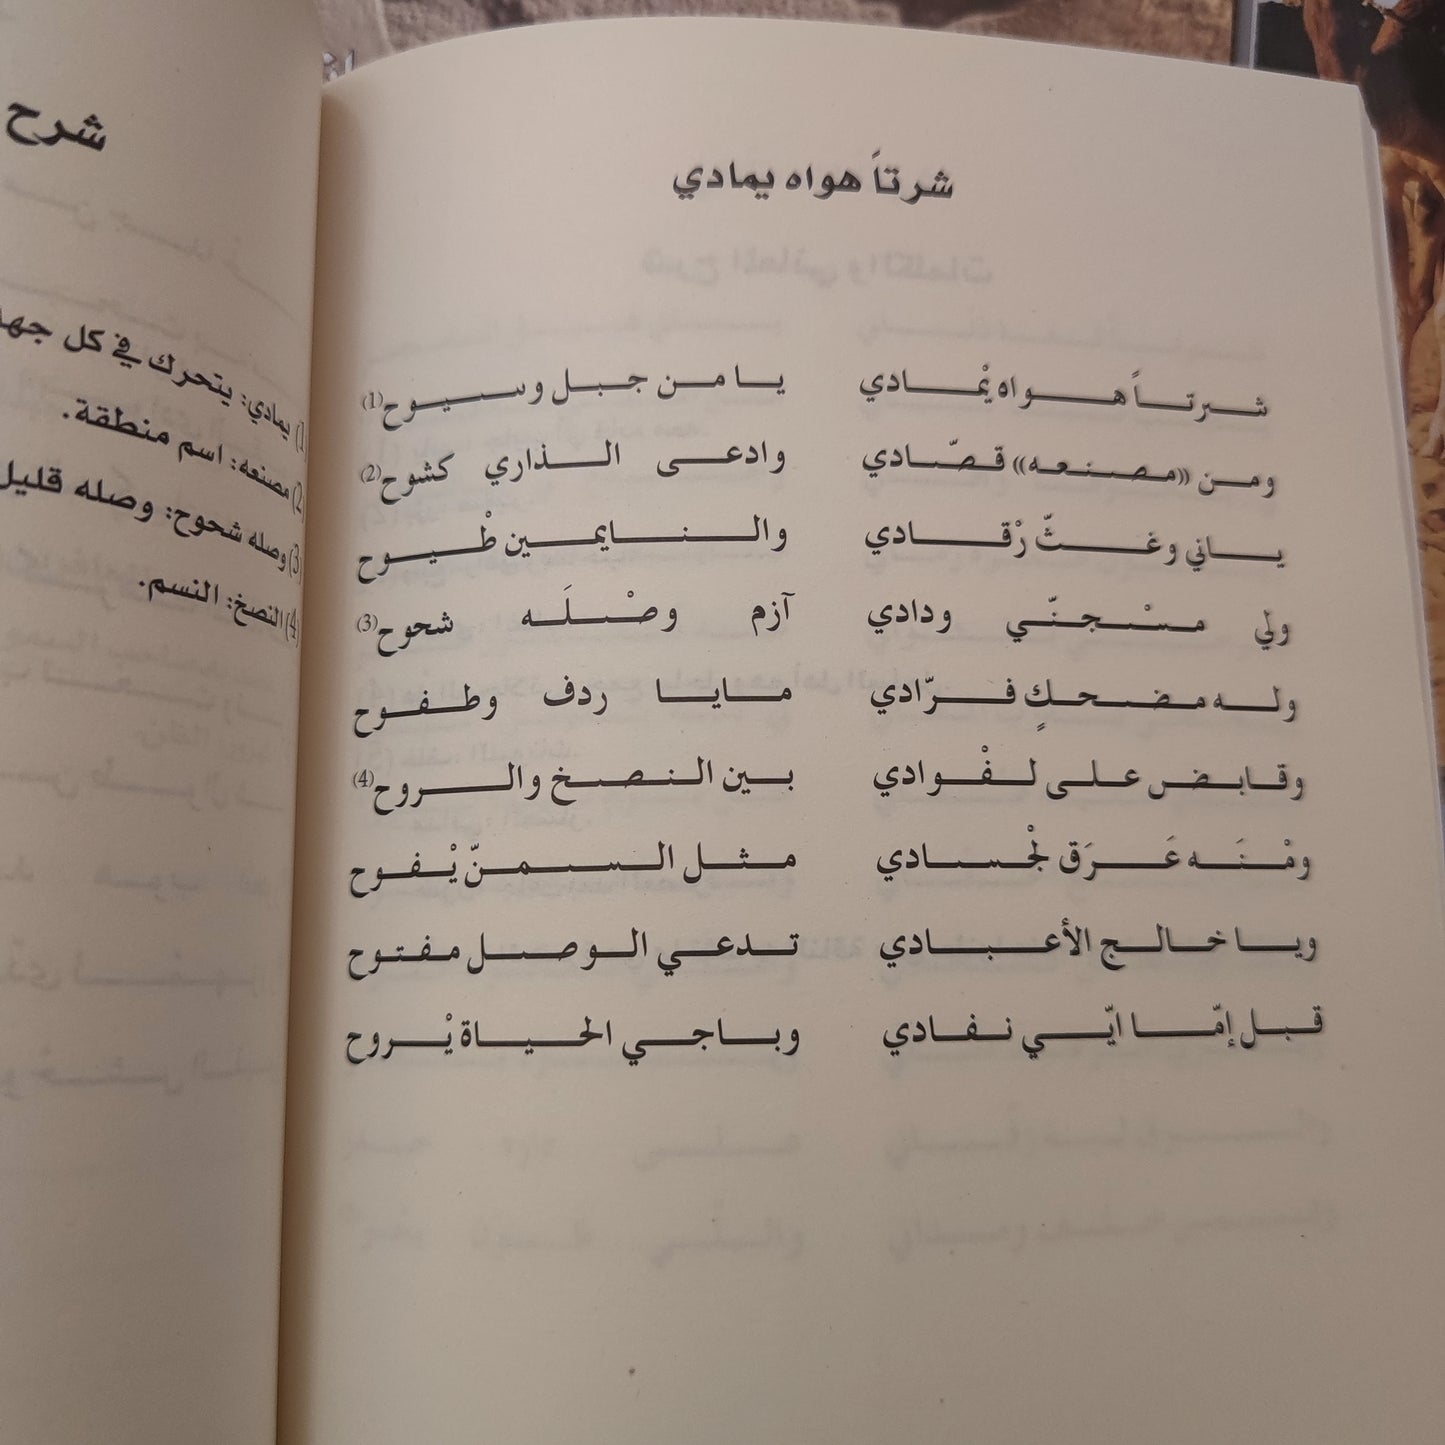 شرتاً هواه يمادي
شرتاً هواه يْمادي يا من جبل وسيوح(1)
ومن «مصنعه» قصّادي وادعى الذاري كشوح(2)
ياني وغثّ رْقادي والنايمين طْيوح
ولي مسْجنّي ودادي آزم وصْلَه شحوح(3)
وله مضحكٍ فرّادي مايا ردف وطفوح
وقابض على لفْوادي بين النصخ والروح(4)
ومْنَه عَرَق لجْسادي مثل السمنّ يْفوح
ويا خالج الأعبادي تدعي الوصل مفتوح
قبل إمّا ايّي نفادي وباجي الحياة يْروح
شرح
(1) يمادي: يتحرك في كل جهة
(2) مصنعه: اسم منطقة.
(3) وصله شحوح: وصله قليل
(4) النصخ: النسم.